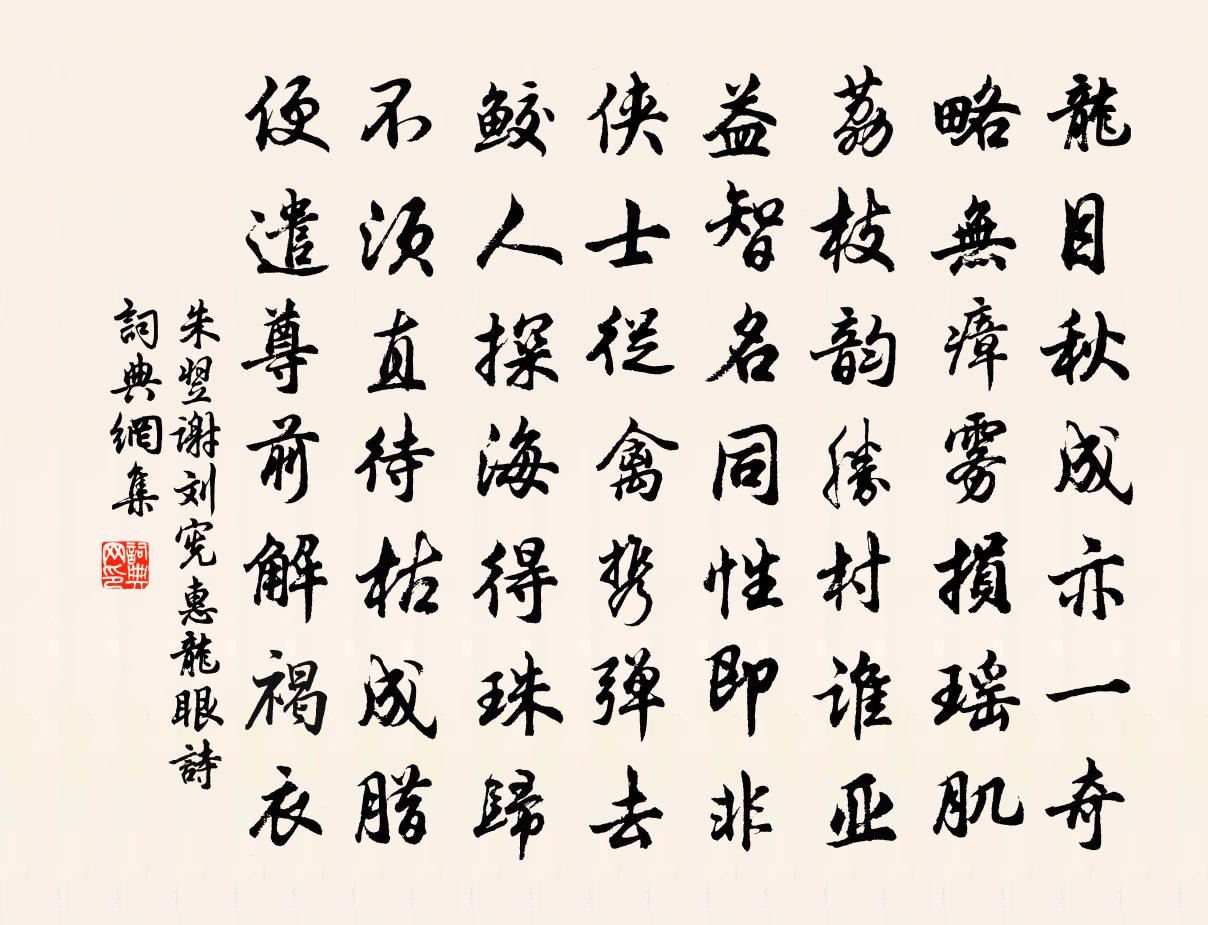 龍目秋成亦一奇
略無瘴雾損瑶肌
荔枝韵勝村谁亚
益智名同性即非
侠士從禽携弹去
鲛人探海得珠歸
不须直待枯成腊
便遣尊前解褐衣
朱翌谢刘宪惠龍眼詩
詞典網集
詞典网印